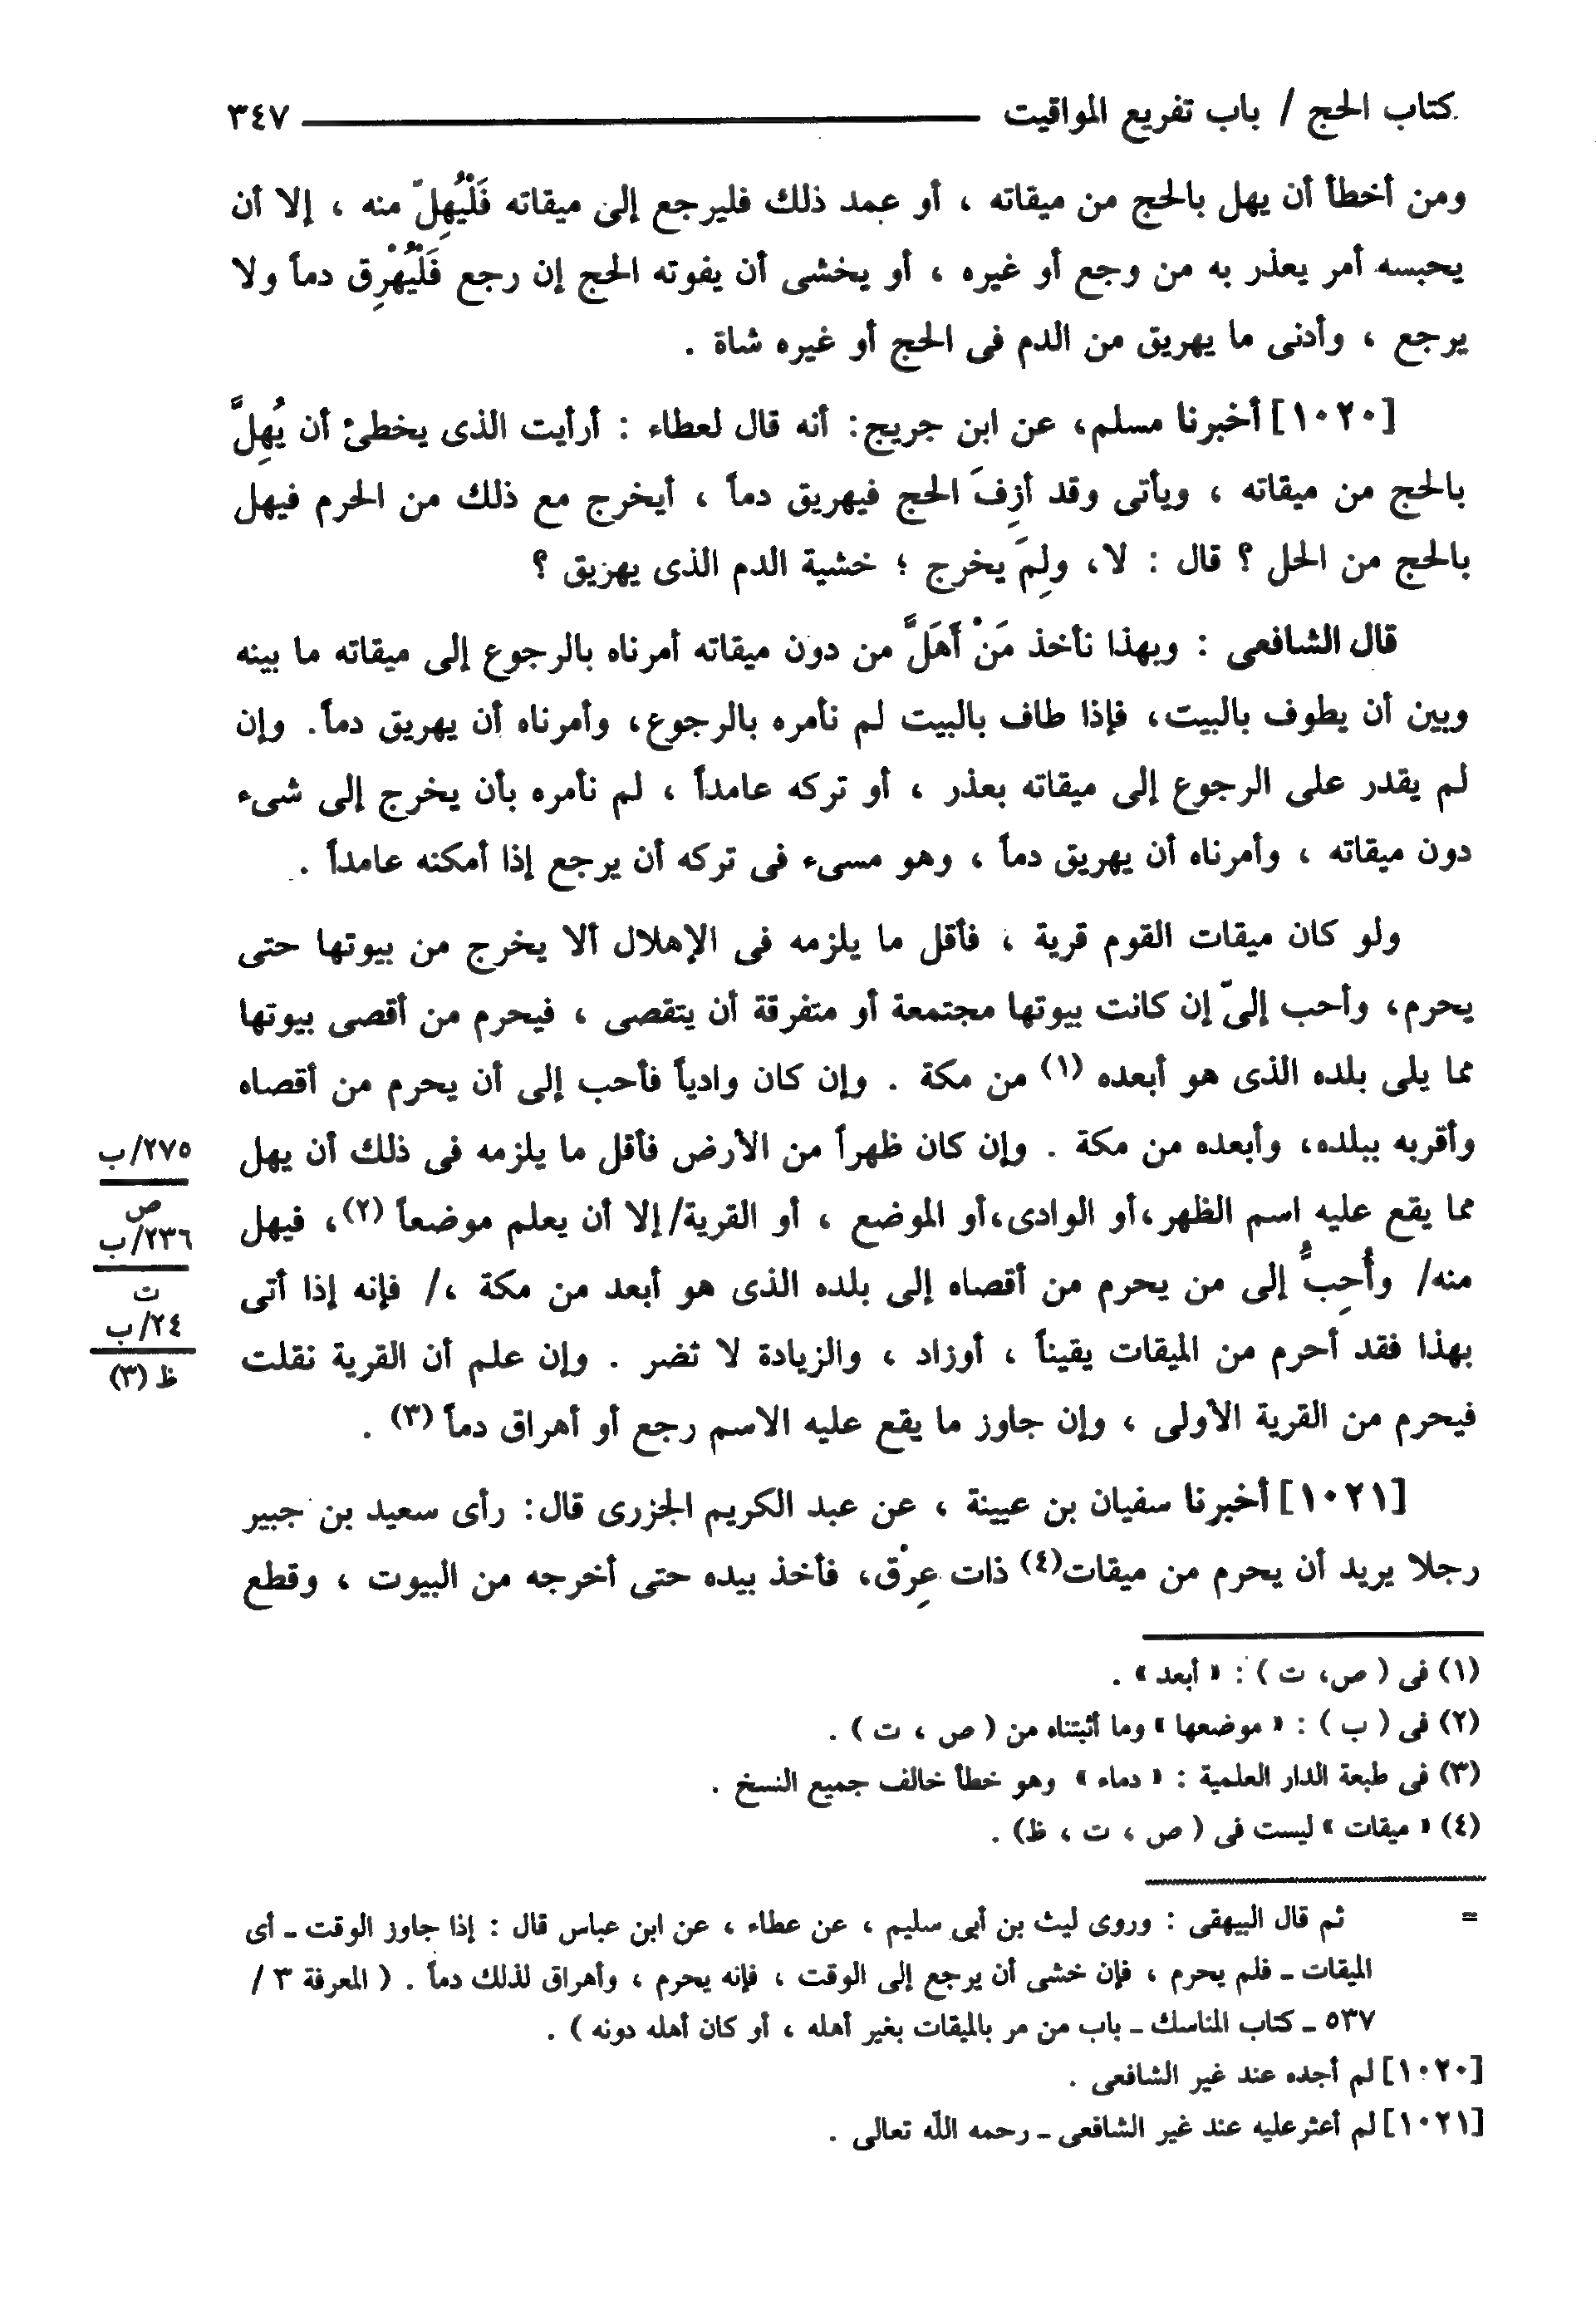 كتاب الحج / باب تفريع المواقيت ٣٤٧
ومن أخطأ أن يهل بالحج من ميقاته ، أو عمد ذلك فليرجع إلى ميقاته فَلْيُهِلّ منه ، إلا أن
يحبسه أمر يعذر به من وجع أو غيره ، أو يخشى أن يفوته الحج إن رجع فَلْيُهْرِق دماً ولا
يرجع ، وأدنى ما يهريق من الدم فى الحج أو غيره شاة .
[١٠٢٠] أخبرنا مسلم، عن ابن جريج: أنه قال لعطاء : أرأيت الذى يخطئ أن يُهِلَّ
بالحج من ميقاته ، ويأتى وقد أزِفَ الحج فيهريق دماً ، أيخرج مع ذلك من الحرم فيهل
بالحج من الحل ؟ قال : لا، ولِمَ يخرج ؛ خشية الدم الذى يهريق ؟
قال الشافعى : وبهذا نأخذ مَنْ أَهَلَّ من دون ميقاته أمرناه بالرجوع إلى ميقاته ما بينه
وبين أن يطوف بالبيت، فإذا طاف بالبيت لم نأمره بالرجوع، وأمرناه أن يهريق دماً. وإن
لم يقدر على الرجوع إلى ميقاته بعذر ، أو تركه عامداً ، لم نأمره بأن يخرج إلى شىء
دون ميقاته ، وأمرناه أن يهريق دماً ، وهو مسىء فى تركه أن يرجع إذا أمكنه عامداً .
ولو كان ميقات القوم قرية ، فأقل ما يلزمه فى الإهلال ألا يخرج من بيوتها حتى
يحرم، وأحب إلىّ إن كانت بيوتها مجتمعة أو متفرقة أن يتقصى ، فيحرم من أقصى بيوتها
مما يلى بلده الذى هو أبعده (١) من مكة . وإن كان وادياً فأحب إلى أن يحرم من أقصاه
وأقربه ببلده، وأبعده من مكة . وإن كان ظهراً من الأرض فأقل ما يلزمه فى ذلك أن يهل
مما يقع عليه اسم الظهر،أو الوادى،أو الموضع ، أو القرية/إلا أن يعلم موضعاً (٢)، فيهل
منه/ وأُحِبُّ إلى من يحرم من أقصاه إلى بلده الذى هو أبعد من مكة ،/ فإنه إذا أتى
بهذا فقد أحرم من الميقات يقيناً ، أوزاد ، والزيادة لا تضر . وإن علم أن القرية نقلت
فيحرم من القرية الأولى ، وإن جاوز ما يقع عليه الاسم رجع أو أهراق دماً (٣) .
٢٧٥/ب
ص
٢٣٦/ب
ت
٢٤/ب
ظ (٣)
[١٠٢١] أخبرنا سفيان بن عيينة ، عن عبد الكريم الجزرى قال: رأى سعيد بن جبير
رجلا يريد أن يحرم من ميقات(٤) ذات عِرْق، فأخذ بيده حتى أخرجه من البيوت ، وقطع
(١) فى ( ص، ت ) : « أبعد » .
(٢) فى ( ب ) : « موضعها » وما أثبتناه من ( ص ، ت ) .
(٣) فى طبعة الدار العلمية : « دماء » وهو خطأ خالف جميع النسخ .
(٤) « ميقات » ليست فى ( ص ، ت ، ظ) .
= ثم قال البيهقى : وروى ليث بن أبى سليم ، عن عطاء ، عن ابن عباس قال : إذا جاوز الوقت ـ أى
الميقات ـ فلم يحرم ، فإن خشى أن يرجع إلى الوقت ، فإنه يحرم ، وأهراق لذلك دماً . ( المعرفة ٣ /
٥٣٧ ـ كتاب المناسك ـ باب من مر بالميقات بغير أهله ، أو كان أهله دونه ) .
[١٠٢٠] لم أجده عند غير الشافعى .
[١٠٢١] لم أعثرعليه عند غير الشافعى ـ رحمه اللّه تعالى .